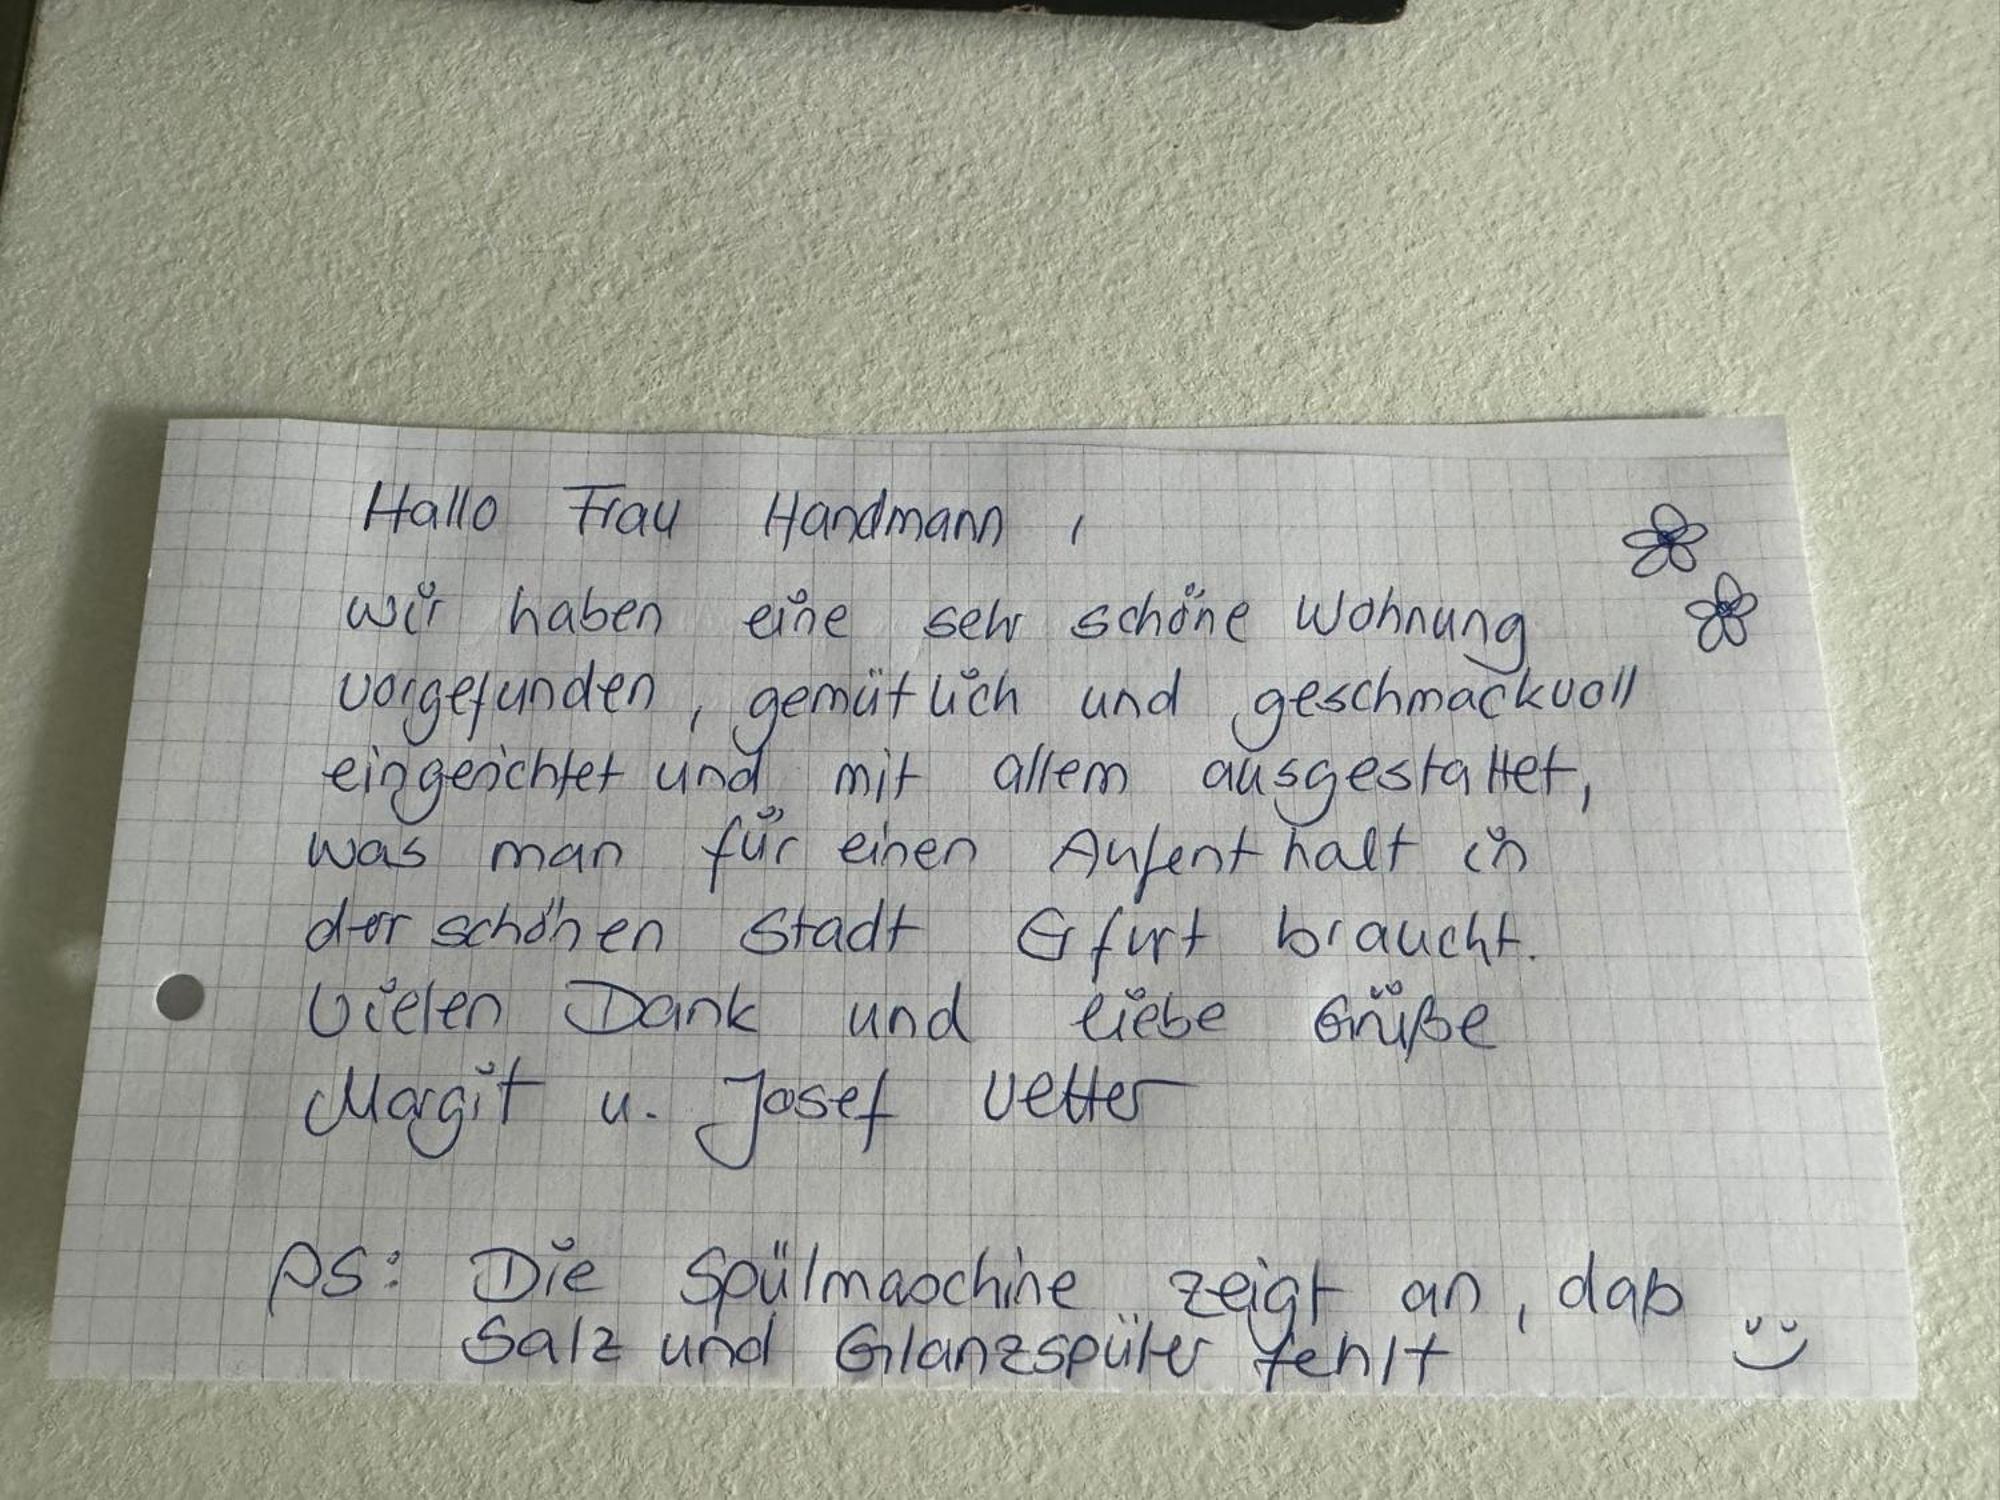 Hallo Frau Handmann,
wir haben eine sehr schöne Wohnung
vorgefunden, gemütlich und geschmackvoll
eingerichtet und mit allem ausgestattet,
was man für einen Aufenthalt in
der schönen Stadt Erfurt braucht.
Vielen Dank und liebe Grüße
Margit u. Josef Vetter
PS: Die Spülmaschine zeigt an, daß
Salz und Glanzspüler fehlt